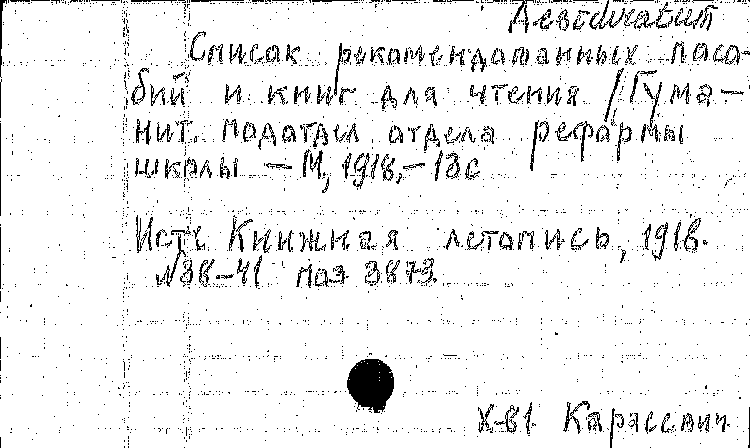 Desideratum
Список рекомендованных посо-
бий и книг для чтения /Гума-
нит. подотдел отдела реформы
школы — М, 1918, — 13с
Ист: Книжная летопись, 1918.
№38-41 поз 3873.
X-81 Карасевич